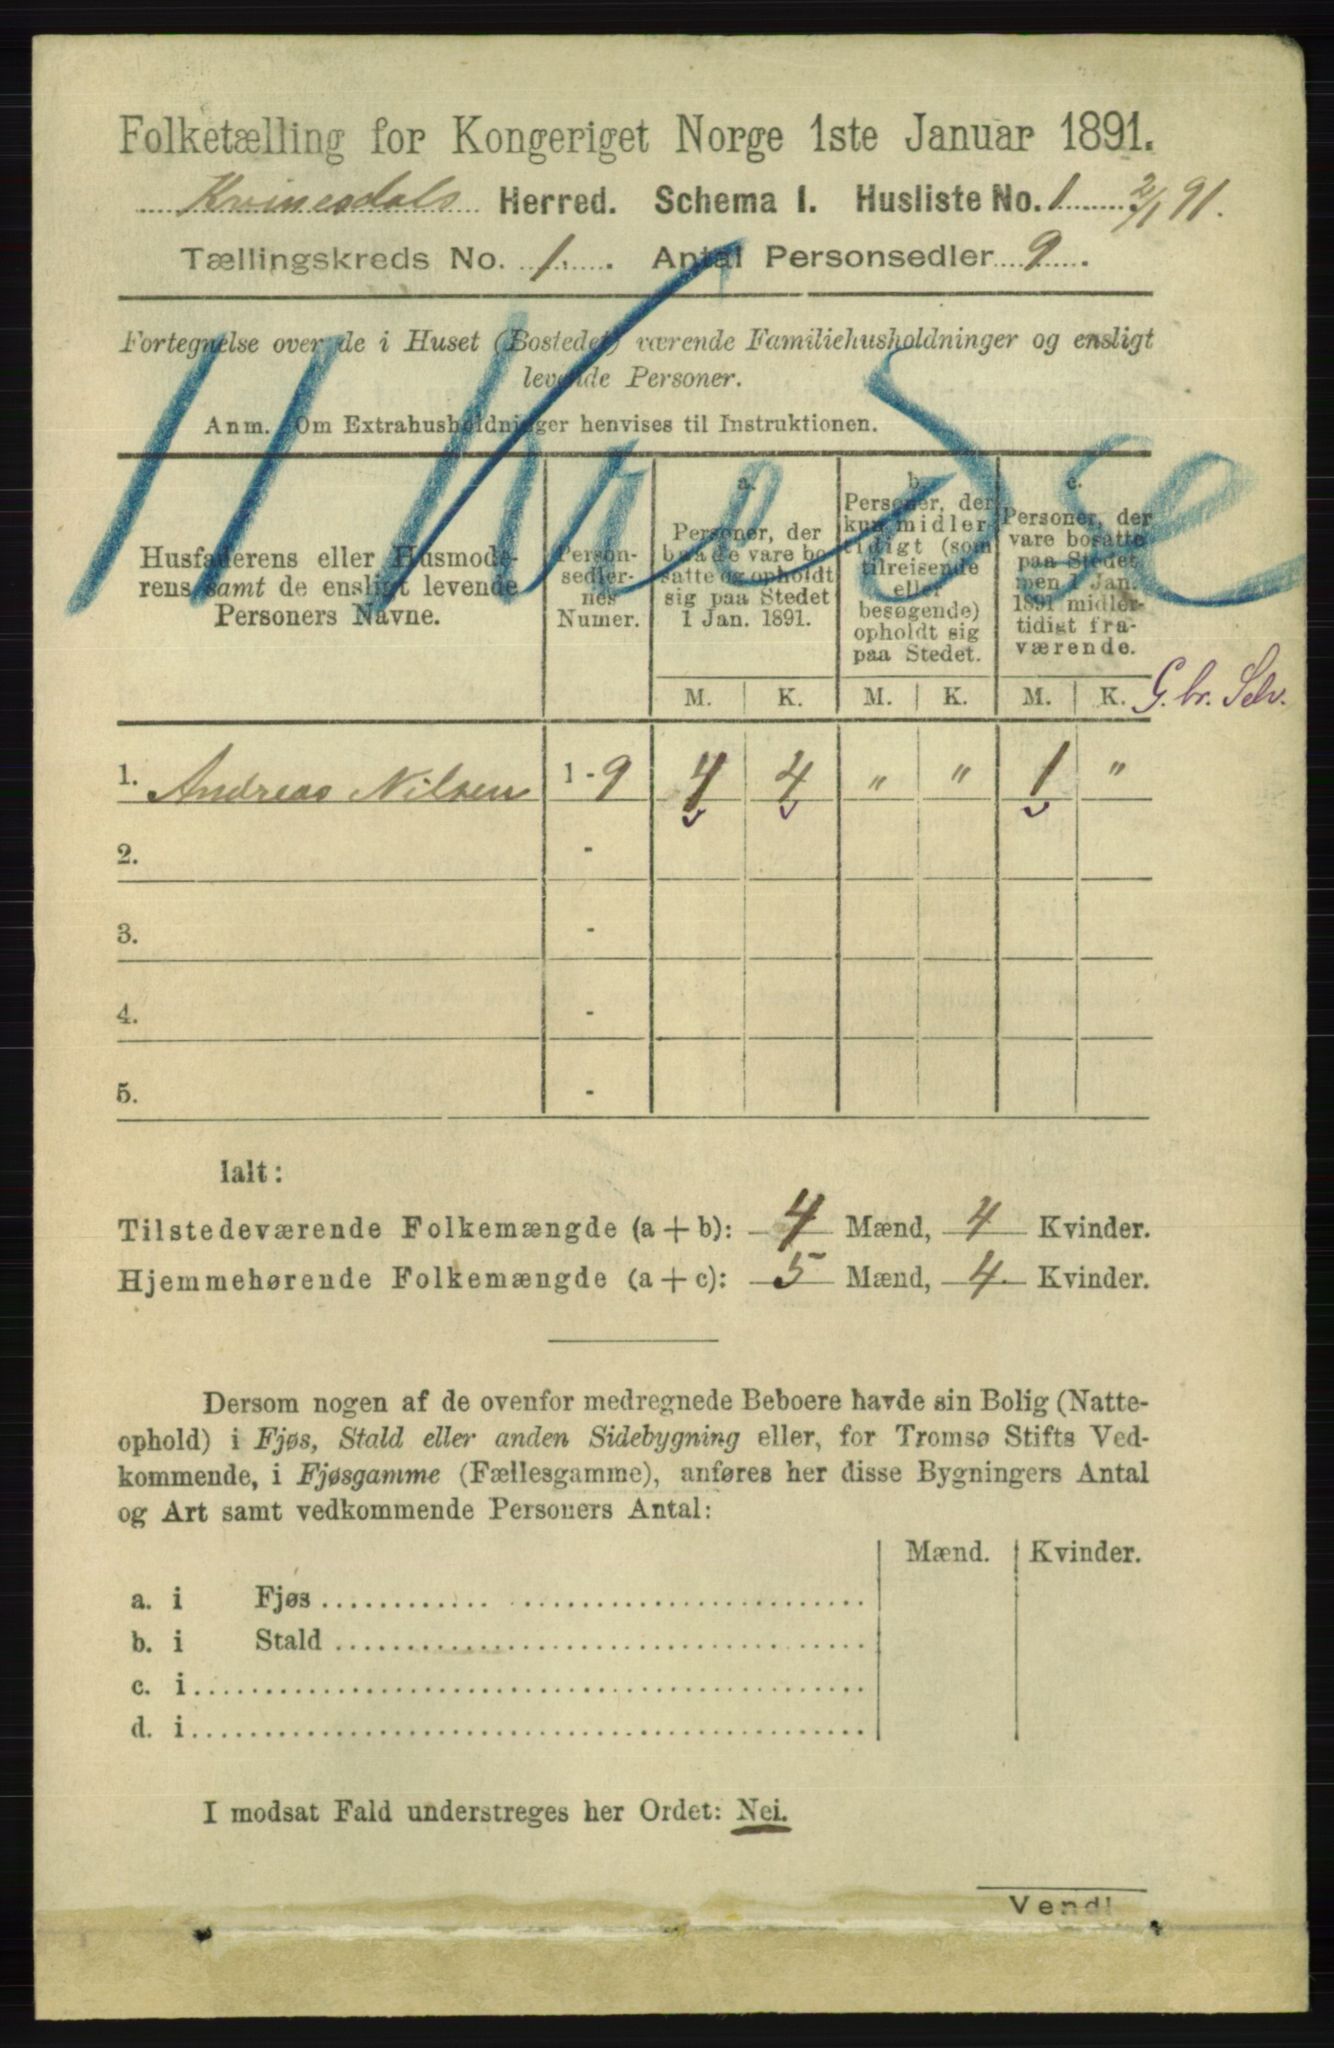 Folketælling for Kongeriget Norge 1ste Januar 1891.
Kvinesdals Herred. Schema I. Husliste No. 1 2/1 91.
Tællingskreds No. 1. Antal Personsedler 9.
Fortegnelse over de i Huset (Bostedet) værende Familiehusholdninger og ensligt
levende Personer.
Anm. Om Extrahusholdninger henvises til Instruktionen.
Husfaderens eller Husmode-
rens samt de ensligt levende
Personers Navne.
Person-
sedler-
nes
Numer.
a.
Personer, der
baade vare bo-
satte og opholdt
sig paa Stedet
1 Jan. 1891.
b.
Personer, der
kun midler-
tidigt (som
tilreisende
eller
besøgende)
opholdt sig
paa Stedet.
c.
Personer, der
vare bosatte
paa Stedet
men 1 Jan.
1891 midler-
tidigt fra-
værende.
M. K. M. K. M. K. G. br. Selv.
1. Andreas Nilsen 1 - 9 4 4 " " 1 "
2. -
3. -
4. -
5. -
Ialt:
Tilstedeværende Folkemængde (a + b): 4 Mænd, 4 Kvinder.
Hjemmehørende Folkemængde (a + c): 5 Mænd, 4 Kvinder.
Dersom nogen af de ovenfor medregnede Beboere havde sin Bolig (Natte-
ophold) i Fjøs, Stald eller anden Sidebygning eller, for Tromsø Stifts Ved-
kommende, i Fjøsgamme (Fællesgamme), anføres her disse Bygningers Antal
og Art samt vedkommende Personers Antal:
Mænd. Kvinder.
a. i Fjøs
b. i Stald
c. i
d. i
I modsat Fald understreges her Ordet: Nei.
Vend!